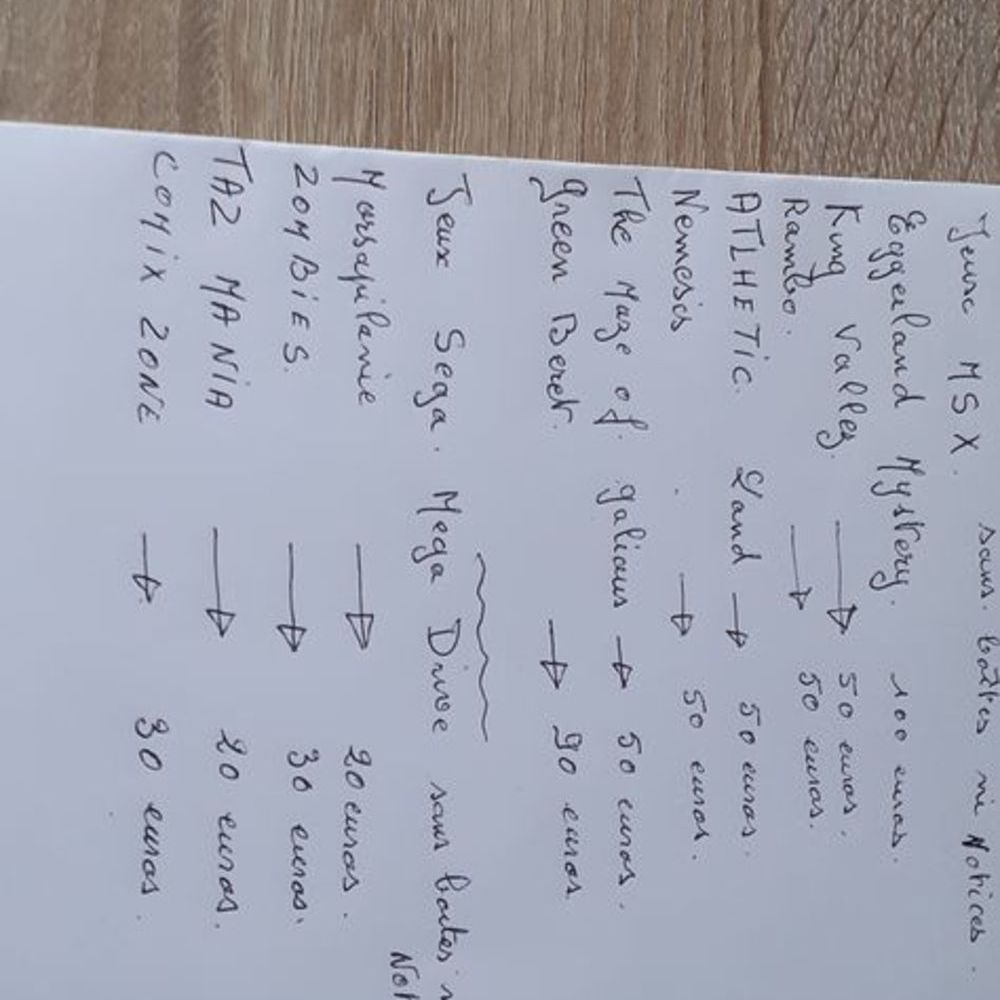 Jeux MSX. sans. boîtes ni Notices.
Eggerland Mystery. 100 euros.
King Valley. → 50 euros.
Rambo. → 50 euros.
ATLHETIC. Land → 50 euros.
Nemesis → 50 euros.
The Maze of. galious → 50 euros.
Green Beret. → 90 euros.
Jeux Sega. Mega Drive sans boites
Marsupilamie → 20 euros.
ZOMBIES. → 30 euros.
TAZ MANIA → 20 euros.
COMIX ZONE → 30 euros.